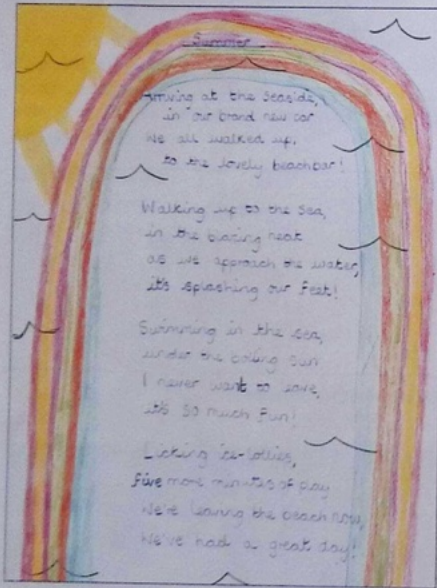 Summer
Arriving at the Seaside,
in our brand new car
We all walked up,
to the lovely beach bar!
Walking up to the Sea,
in the blazing heat
as we approach the water,
it's splashing our feet!
Swimming in the sea,
under the boiling sun
I never want to leave,
it's so much fun!
Licking ice-lollies,
Five more minutes of play
We're leaving the beach now,
We've had a great day!